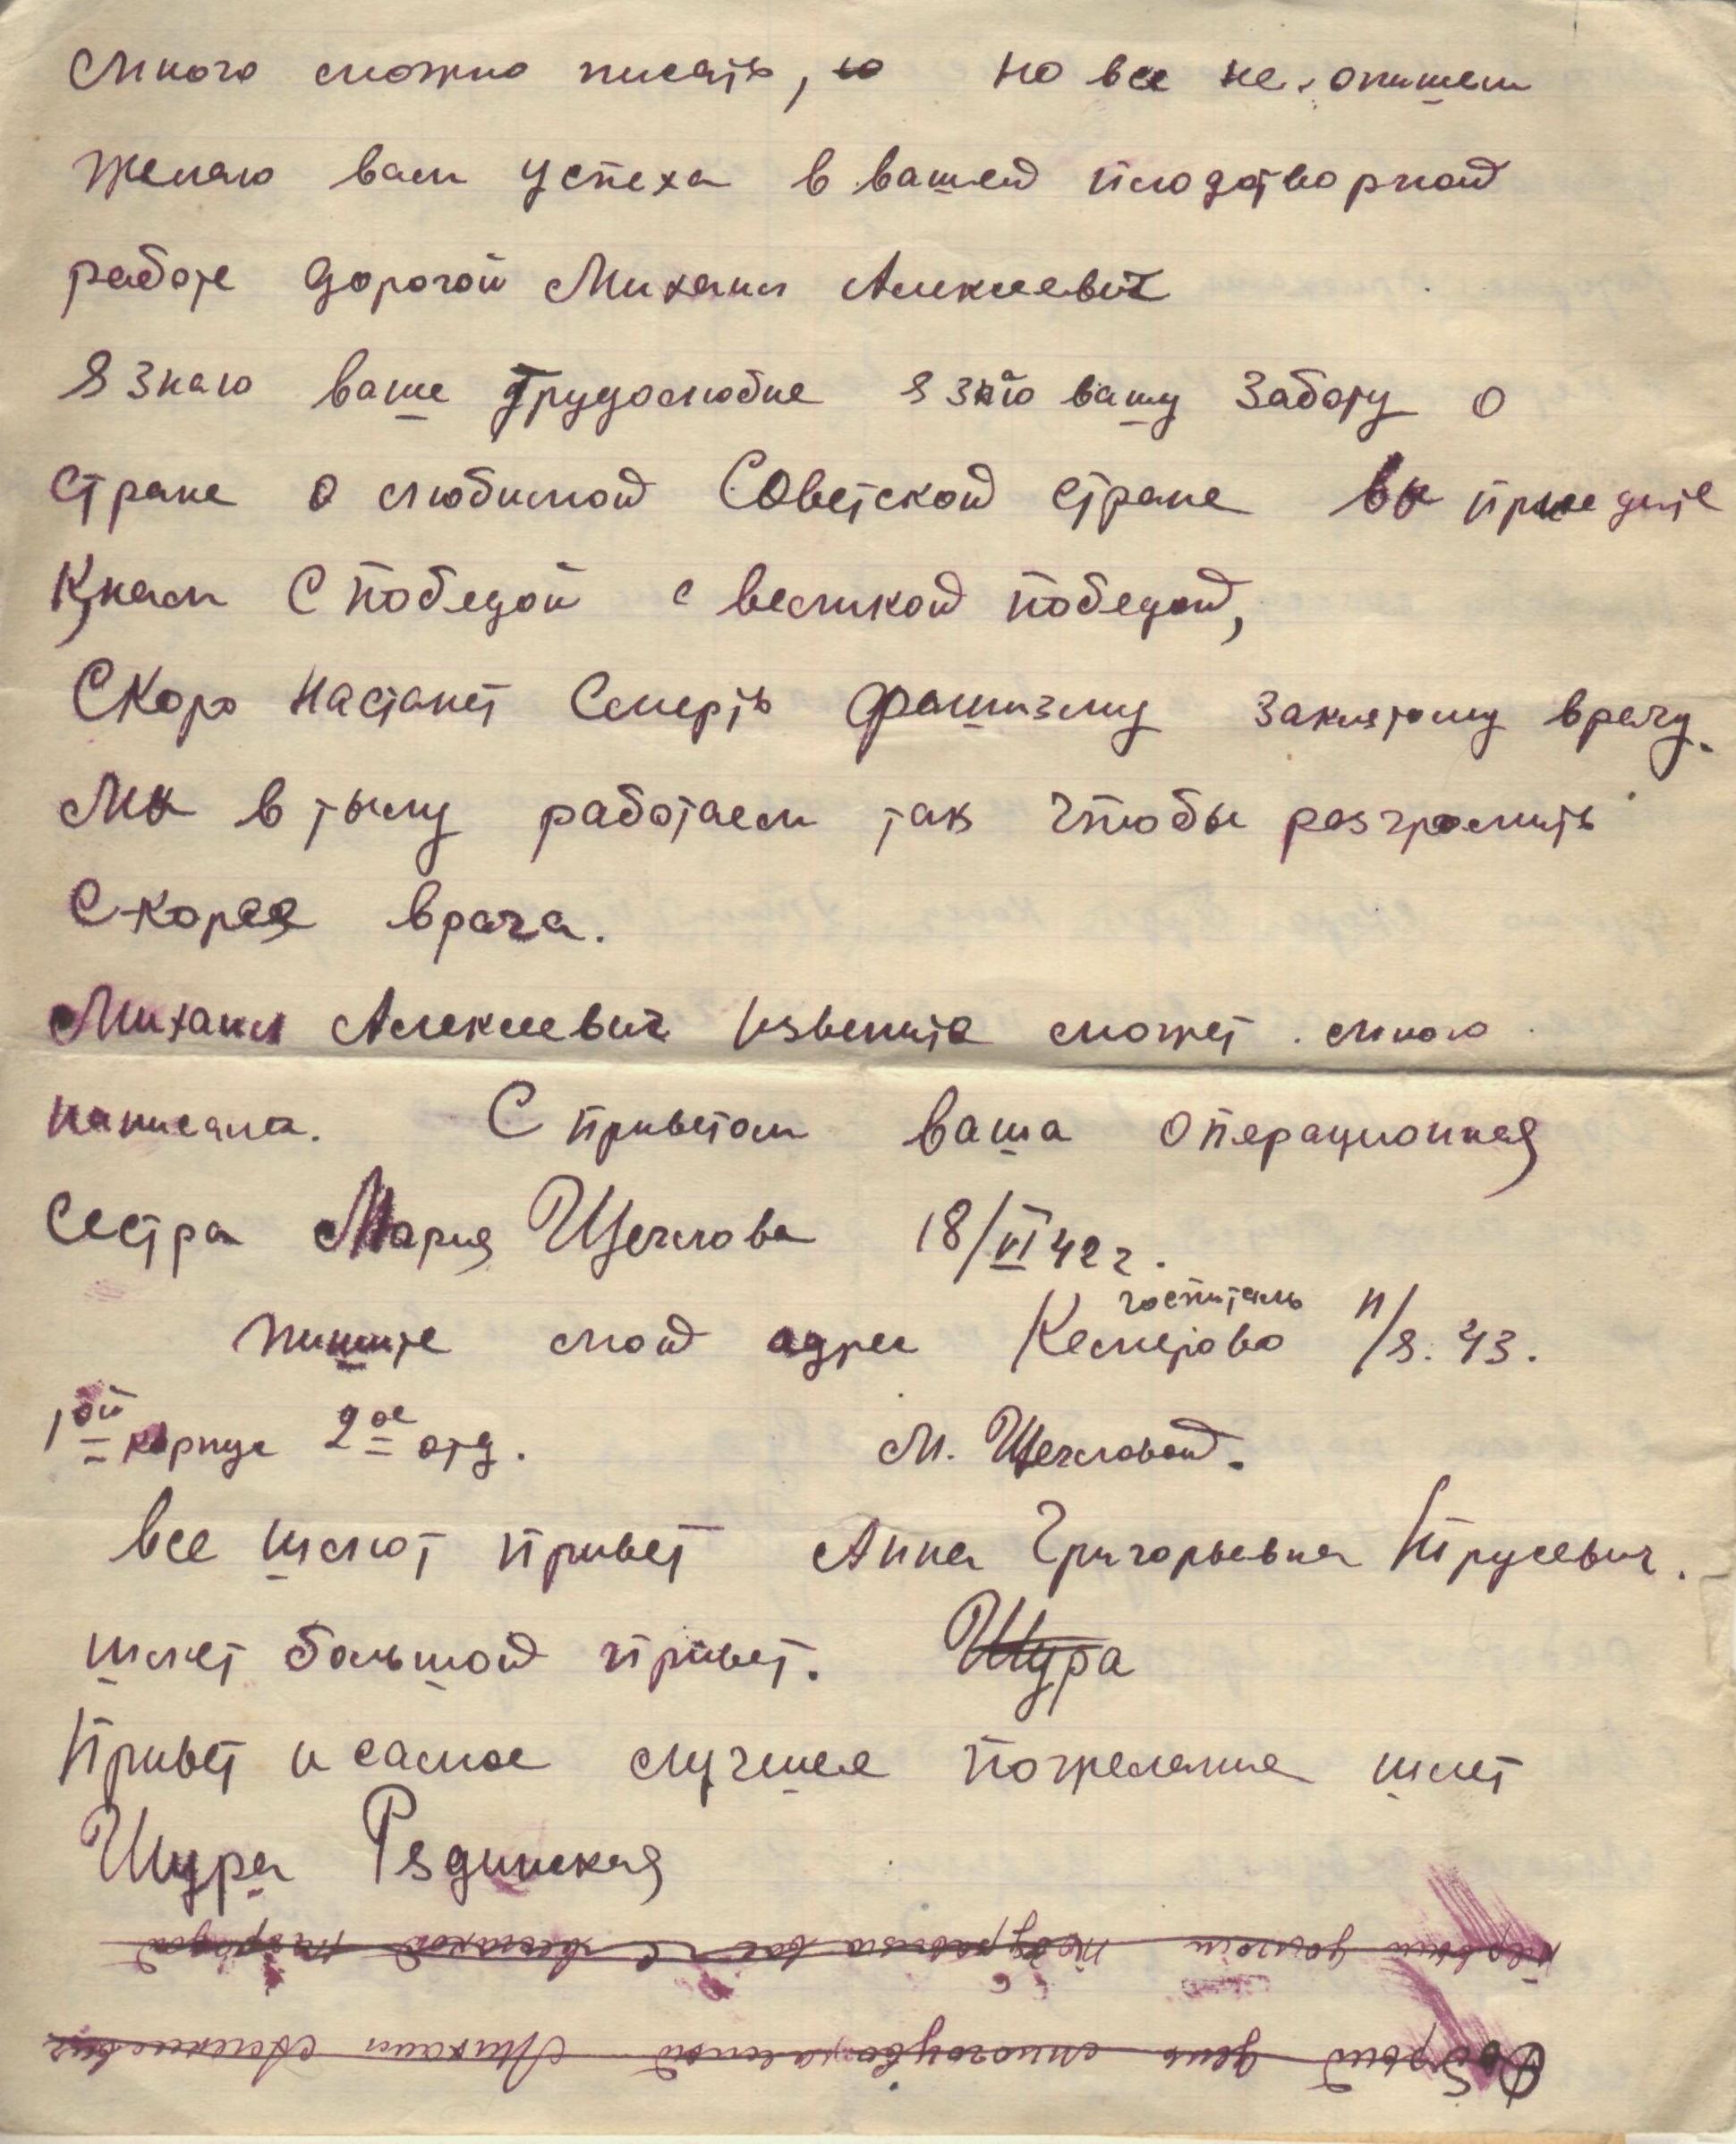 Много можно писать, но все не опишеш
Желаю вам успеха в вашей плодотворной
работе дорогой Михаил Алексеевич
я знаю ваше трудолюбие я знаю вашу заботу о
стране о любимой Советской стране вы приедите
К нам с победой с великой победой,
Скоро настанет Смерть фашизму заклятому врагу.
Мы в тылу работаем так чтобы розгромить
Скорее врага.
Михаил Алексеевич извените может много
написала. С приветом ваша операционная
Сестра Мария Щеглова 18/VI 42 г.
пишите мой адрес Кемерово госпиталь п/я. 43.
1ой корпус 2ое отд. М. Щегловой.
Все шлют привет Анна Григорьевна Трусевич.
шлет большой привет. Шура
Привет и самое лучшее пожелание шлет
Шура Рядинская
Добрый день многоуважаемый Михаил Алексеевич
первым долгом поздравляю вас с великой победой